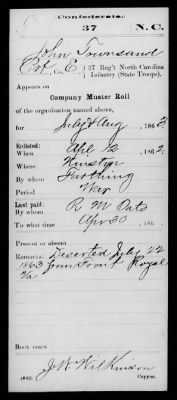 Confederate.
37 N.C.
John Townsand
Pvt, Co. E, 37 Reg't North Carolina
Infantry (State Troops).
Appears on
Company Muster Roll
of the organization named above,
for July & Aug, 1863
Enlisted:
When Apl 12, 1862
Where Kinston
By whom Farthing
Period War
Last paid:
By whom R M Oats
To what time Apr 30, 186
Present or absent
Remarks: Deserted July 22
1863 from Front Royal
Va
Book mark:
J W Wilkinson
(642) Copyist.